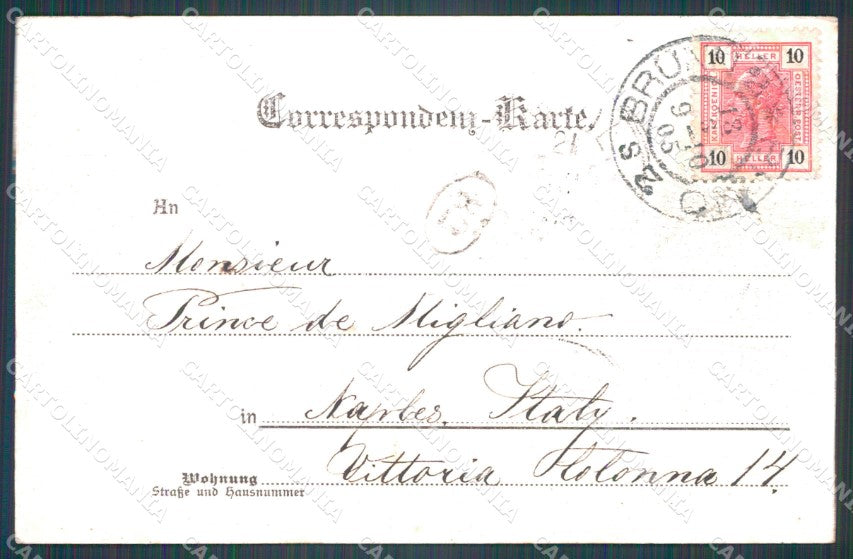 Correspondenz-Karte.
10 HELLER 10
KAIS. KOENIGL. OESTERR. POST
10 HELLER 10
An
Monsieur
Prince de Migliano.
in Naples. Italy.
Wohnung Vittoria Colonna 14.
Straße und Hausnummer
CARTOLINOMANIA